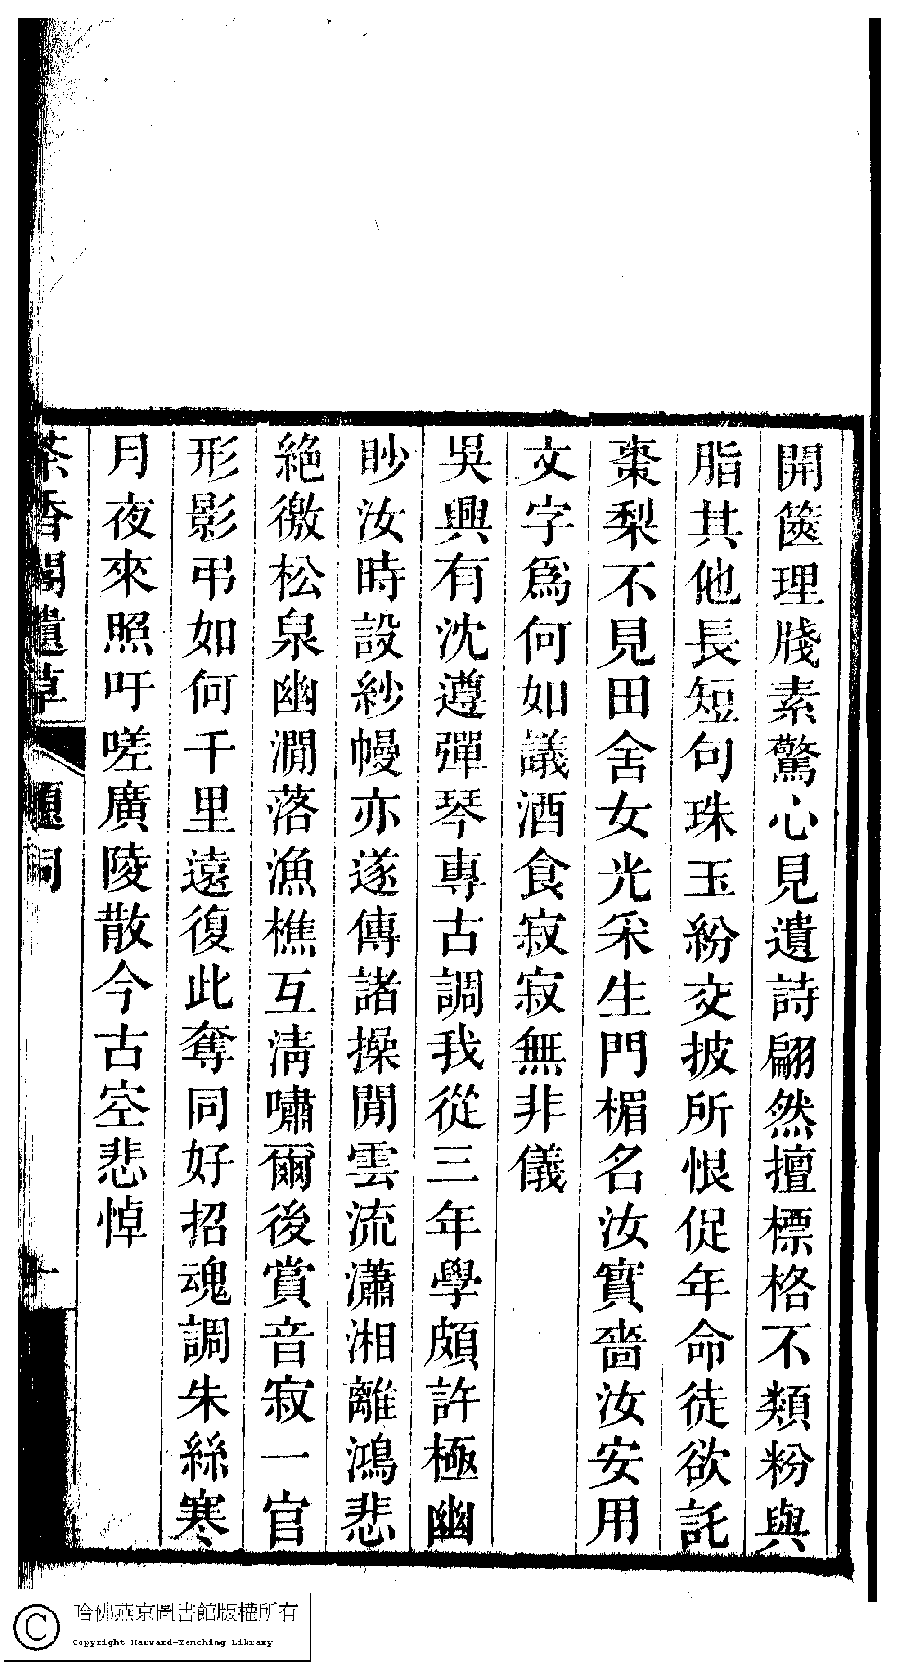 開篋理牋素驚心見遺詩翩然擅標格不類粉與
脂其他長短句珠玉紛交披所恨促年命徒欲託
棗梨不見田舍女光采生門楣名汝實嗇汝安用
文字爲何如議酒食寂寂無非儀
吳興有沈遵彈琴專古調我從三年學頗許極幽
眇汝時設紗幔亦遂傳諸操閒雲流瀟湘離鴻悲
絕徼松泉幽澗落漁樵互淸嘯爾後賞音寂一官
形影弔如何千里遠復此奪同好招魂調朱絲寒
月夜來照吁嗟廣陵散今古空悲悼
茶香閣遺草
題詞
十
哈佛燕京圖書館版權所有
Copyright Harvard-Yenching Library